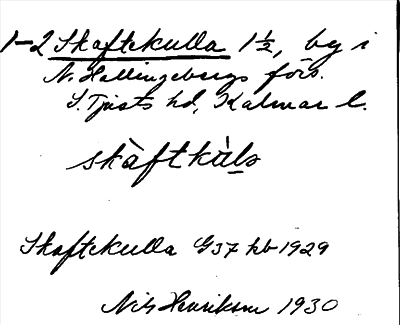 1-2 Skaftekulla 1½, by i
N. Hallingebergs förs.
S. Tjusts hd, Kalmar l.
skàftkùlo
Skaftekulla G37 hb 1929
Nils Henrikson 1930